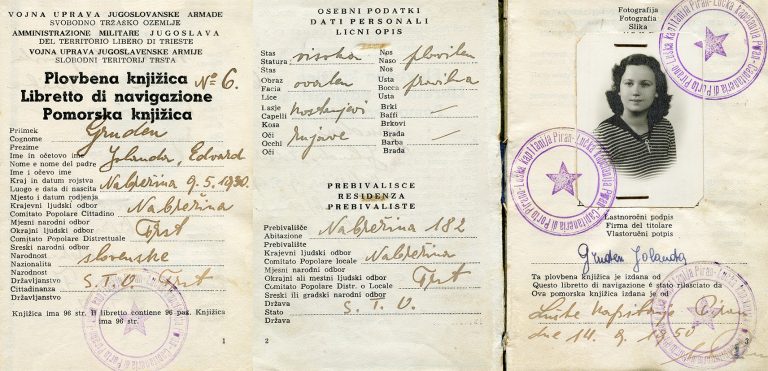 VOJNA UPRAVA JUGOSLOVANSKE ARMADE
SVOBODNO TRŽAŠKO OZEMLJE
AMMINISTRAZIONE MILITARE JUGOSLAVA
DEL TERRITORIO LIBERO DI TRIESTE
VOJNA UPRAVA JUGOSLAVENSKE ARMIJE
SLOBODNI TERITORIJ TRSTA
Plovbena knjižica No 6.
Libretto di navigazione
Pomorska knjižica
Priimek
Cognome Gruden
Prezime
Ime in očetovo ime
Nome e nome del padre Jolanda, Edvard
Ime i očevo ime
Kraj in datum rojstva
Luogo e data di nascita Nabrežina 9.5.1930.
Mjesto i datum rodjenja
Krajevni ljudski odbor
Comitato Popolare Cittadino Nabrežina
Mjesni narodni odbor
Okrajni ljudski odbor
Comitato Popolare Distrettuale Trst
Sreski narodni odbor
Narodnost
Nazionalità slovenske
Narodnost
Državljanstvo
Cittadinanza S. T. O. Trst
Državljanstvo
Knjižica ima 96 str. Il libretto contiene 96 pag. Knjižica
ima 96 str.
1
OSEBNI PODATKI
DATI PERSONALI
LICNI OPIS
Stas Nos
Statura visoka Naso plovilen
Stas Nos
Obraz Usta
Facia ovalen Bocca pravilna
Lice Usta
Lasje Brki
Capelli kostanjevi Baffi —
Kosa Brkovi
Oči Brada
Occhi rujave Barba —
Oči Brada
PREBIVALISCE
RESIDENZA
PREBIVALISTE
Prebivališče
Abitazione Nabrežina 182
Prebivalište
Krajevni ljudski odbor
Comitato Popolare locale Nabrežina
Mjesni narodni odbor
Okrajni ali mestni ljudski odbor
Comitato Popolare Distr. o Locale Trst
Sreski ili gradski narodni odbor
Država
Stato S. T. O.
Država
2
Fotografija
Fotografia
Slika
Lastnoročni podpis
Firma del titolare
Vlastoručni potpis
Gruden Jolanda
Ta plovbena knjižica je izdana od
Questo libretto di navigazione è stato rilasciato da
Ova pomorska knjižica izdana je od
Luške Kapitanije Piran
dne 14. 9. 1950
3